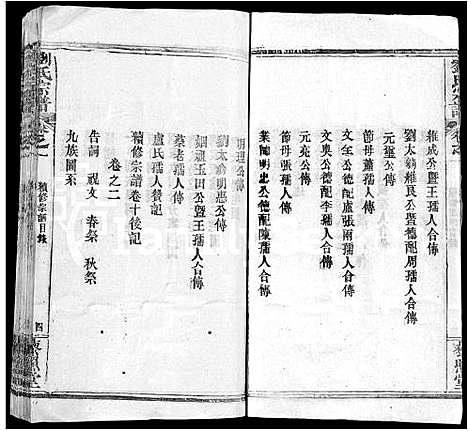 劉氏宗譜
卷之一
維成公暨王孺人合傳
劉太翁維良公暨德配周孺人合傳
節母蕭孺人傳
文年公德配盧張兩孺人合傳
文奧公德配李孺人合傳
元亮公傳
節母張孺人傳
業師明宗公德配陳孺人合傳
明理公傳
劉太翁明忠公傳
姻祖玉田公暨王孺人合傳
蔡老孺人傳
盧氏孺人贊記
續修宗譜卷十後記
卷之二
告詞 祝文 春祭 秋祭
九族圖系
劉氏宗譜
卷之一
續修宗譜目錄
四